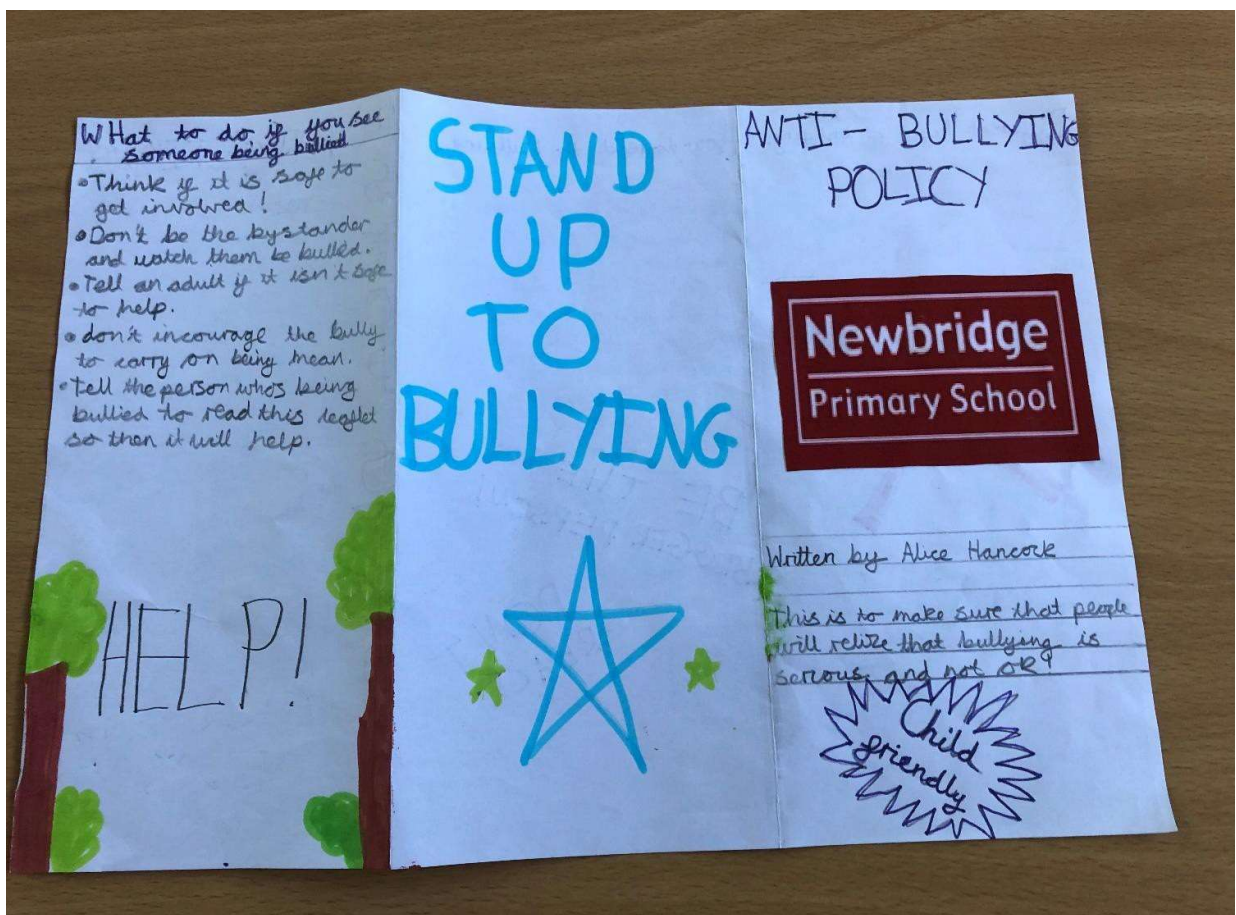 WHat to do if you see
someone being bullied
•Think if it is safe to
get involved!
•Don't be the bystander
and watch them be bulled.
•Tell an adult if it isn't safe
to help.
•don't incourage the bully
to carry on being mean.
•tell the person whos being
bullied to read this leaflet
so then it will help.
HELP!
STAND
UP
TO
BULLYING
ANTI- BULLYING
POLICY
Newbridge
Primary School
Written by Alice Hancock
This is to make sure that people
will relize that bullying is
serious and not OK!
Child
friendly